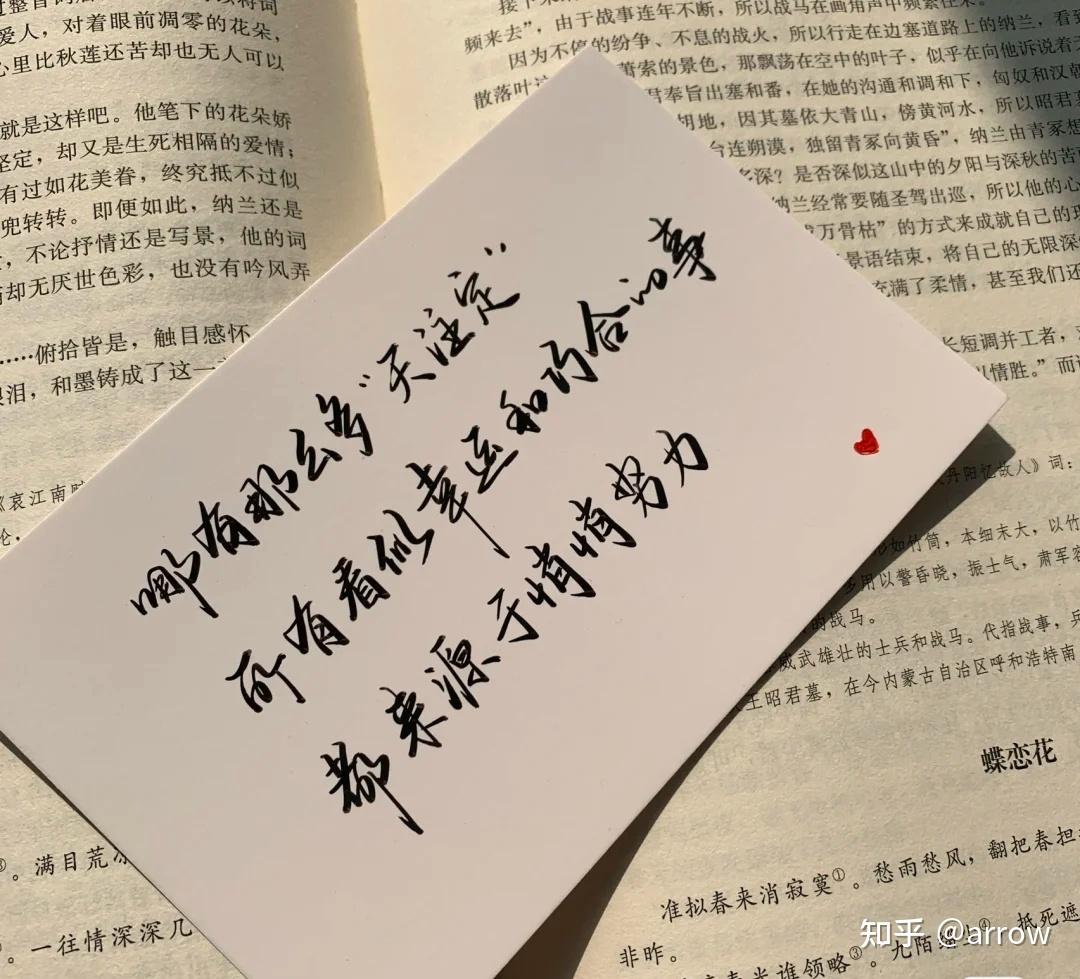 爱人，对着眼前凋零的花朵，
心里比秋莲还苦却也无人可以
就是这样吧。他笔下的花朵娇
坚定，却又是生死相隔的爱情；
有过如花美眷，终究抵不过似
兜转转。即便如此，纳兰还是
，不论抒情还是写景，他的词
却无厌世色彩，也没有吟风弄
……俯拾皆是，触目感怀
泪，和墨铸成了这一
《哀江南
论，
。满目荒
。一往情深深几
频来去”，由于战事连年不断，所以战马在画角声中频繁往来。
因为不停的纷争、不息的战火，所以行走在边塞道路上的纳兰，看到
散落叶 萧索的景色，那飘荡在空中的叶子，似乎在向他诉说着
君奉旨出塞和番，在她的沟通和调和下，匈奴和汉朝
胡地，因其墓依大青山，傍黄河水，所以昭君
台连朔漠，独留青冢向黄昏”，纳兰由青冢想
多深？是否深似这山中的夕阳与深秋的苦
纳兰经常要随圣驾出巡，所以他的心
万骨枯”的方式来成就自己的
景语结束，将自己的无限深
充满了柔情，甚至我们还
长短调并工者，
以情胜。”而
丹阳忆故人》词：
如竹筒，本细末大，以竹
多用以警昏晓，振士气，肃军容
的战马。
威武雄壮的士兵和战马。代指战事，兵
王昭君墓，在今内蒙古自治区呼和浩特南
蝶恋花
准拟春来消寂寞①。愁雨愁风，翻把春担
非昨。
春光谁领略③。九陌 ④，抵死遮
哪有那么多“天注定”
所有看似幸运和巧合的事
都来源于悄悄努力
知乎 @arrow